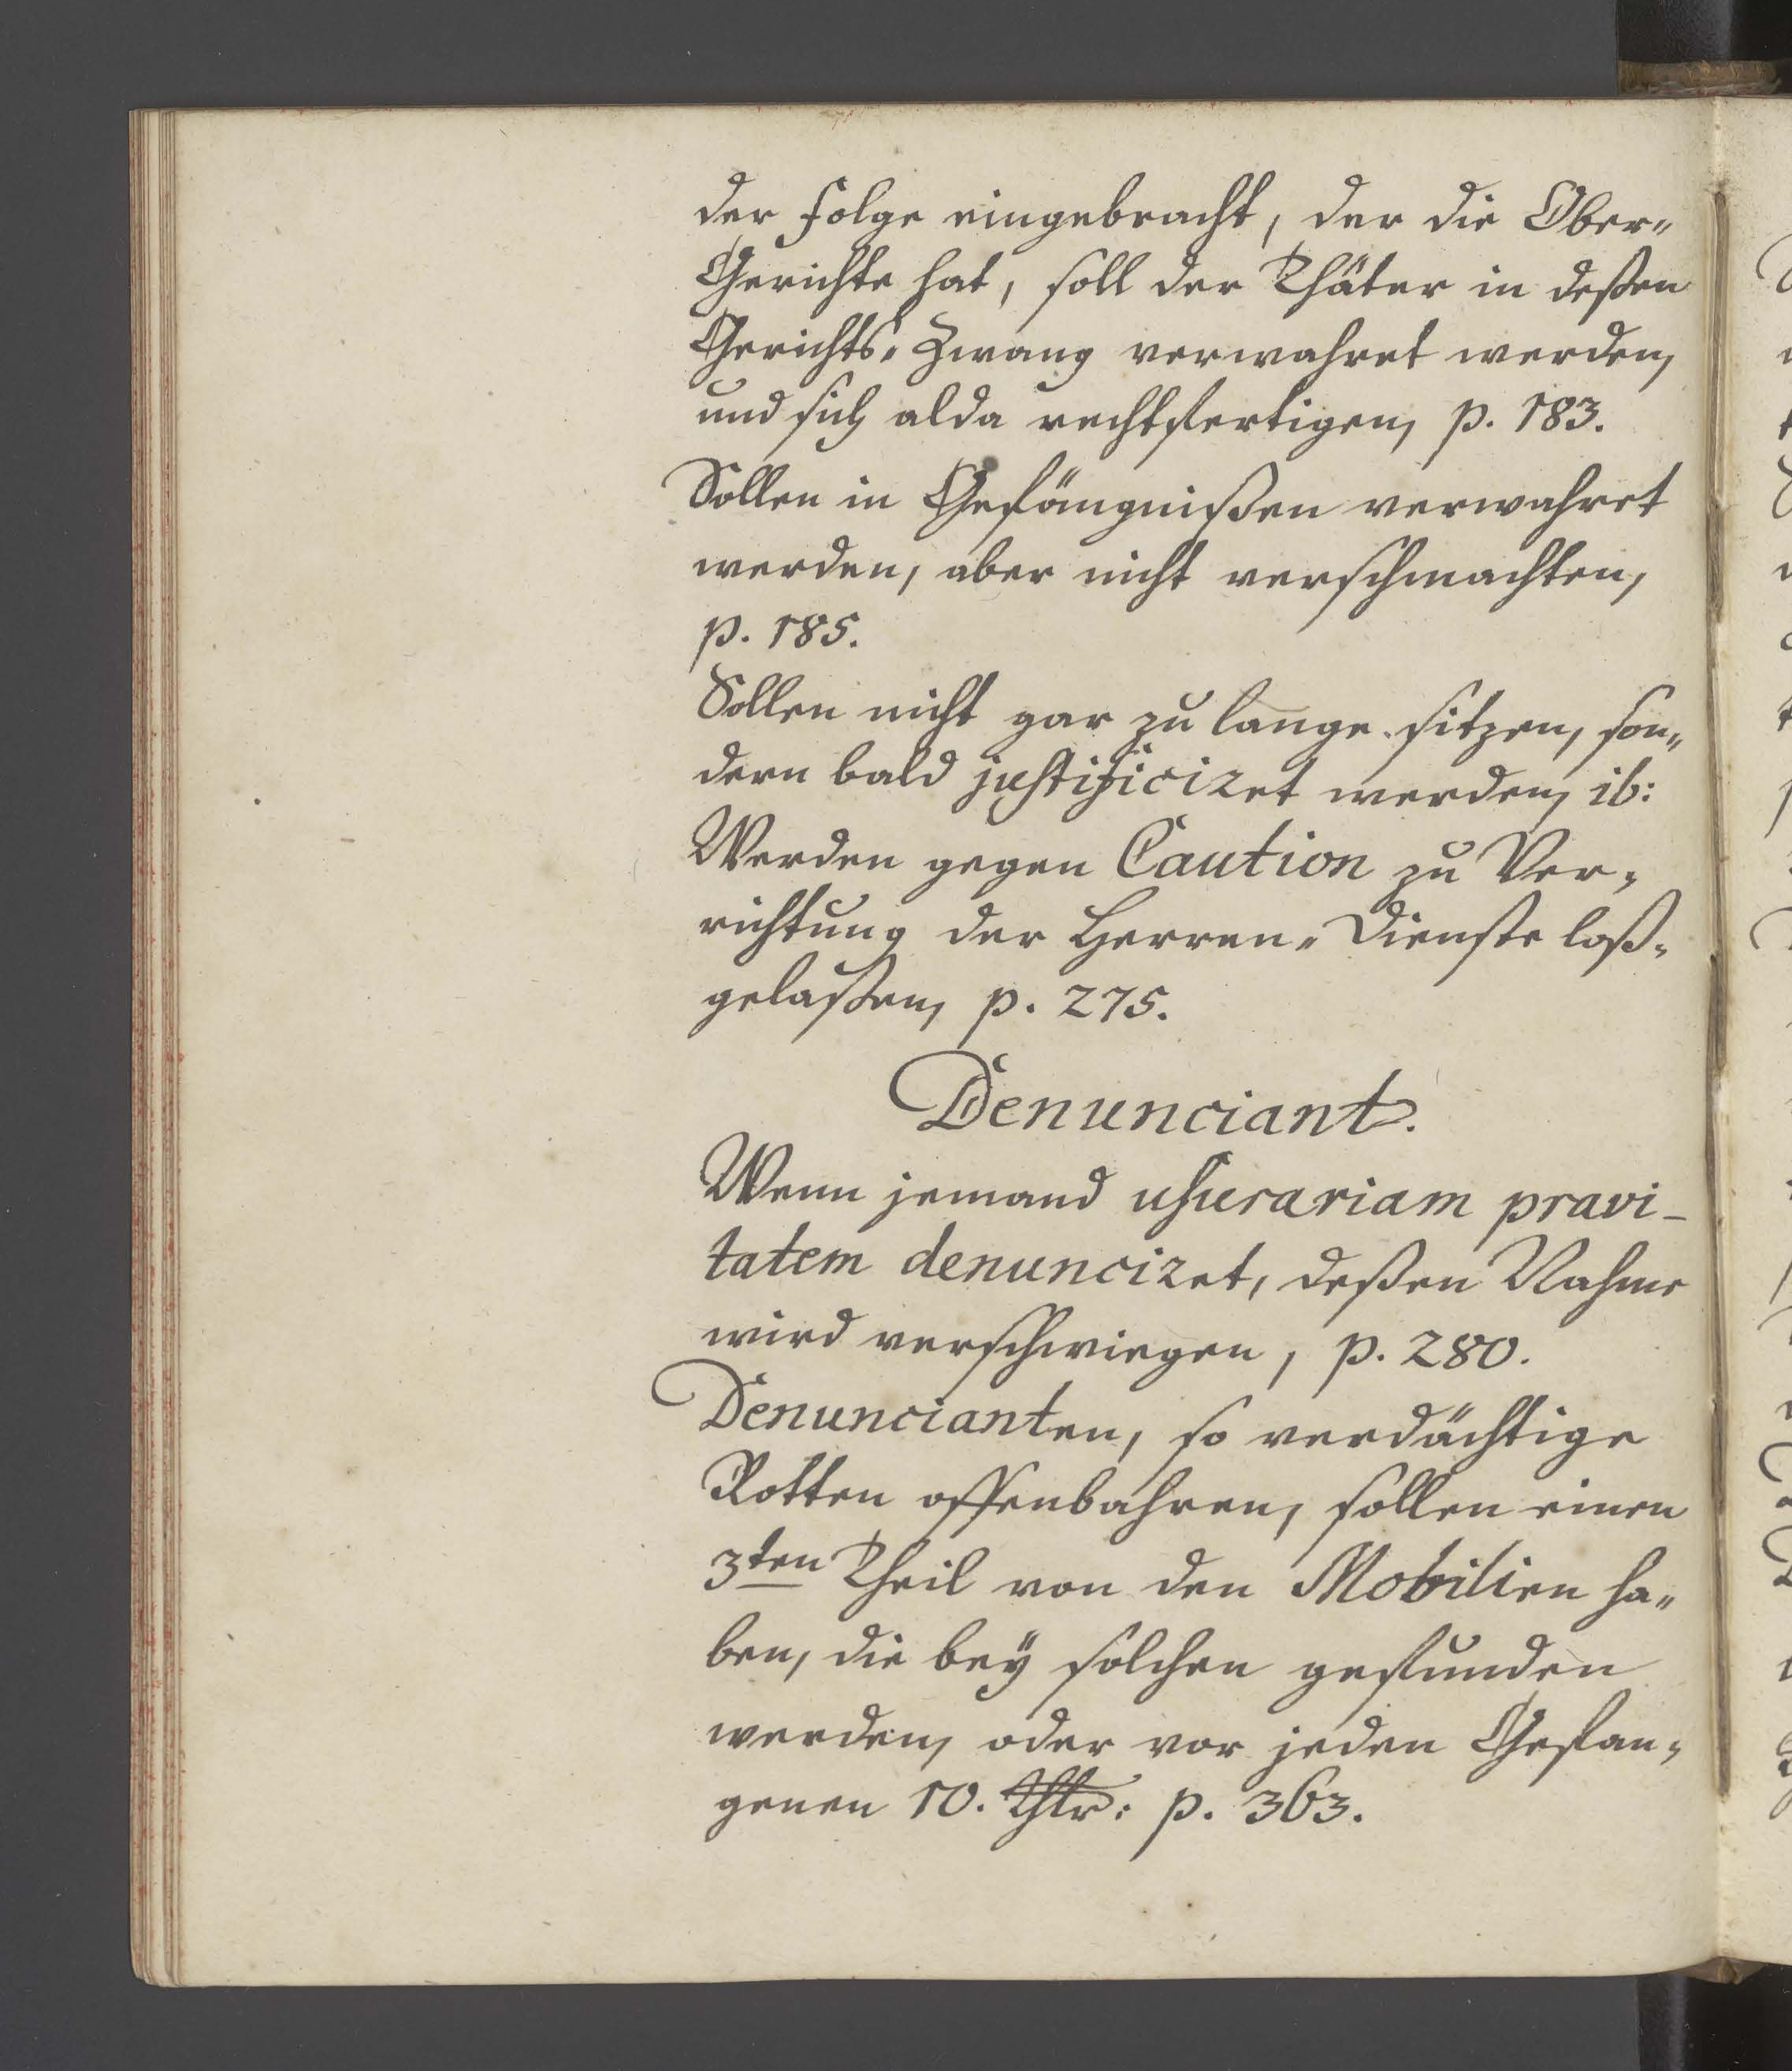 der Folge eingebracht, der die Ober-
Gerichte hat, soll der Thäter in deßen
Gerichts-Zwang verwahret werden,
und sich alda rechtfertigen, p. 183.
Sollen in Gefängnißen verwahret
werden, aber nicht verschmachten,
p. 185.
Sollen nicht gar zu lange sitzen, son-
dern bald justificiret werden, ib:
Werden gegen Caution zu Ver-
richtung der Herren-Dienste loß-
gelaßen, p. 275.
Denunciant.
Wenn jemand usurariam pravi-
tatem denunciret, deßen Nahme
wird verschwiegen, p. 280.
Denuncianten, so verdächtige
Rotten offenbahren, sollen einen
3ten Theil von den Mobilien ha-
ben, die beÿ solchen gefunden
werden, oder vor jeden Gefan-
genen 10. Thlr: p. 363.